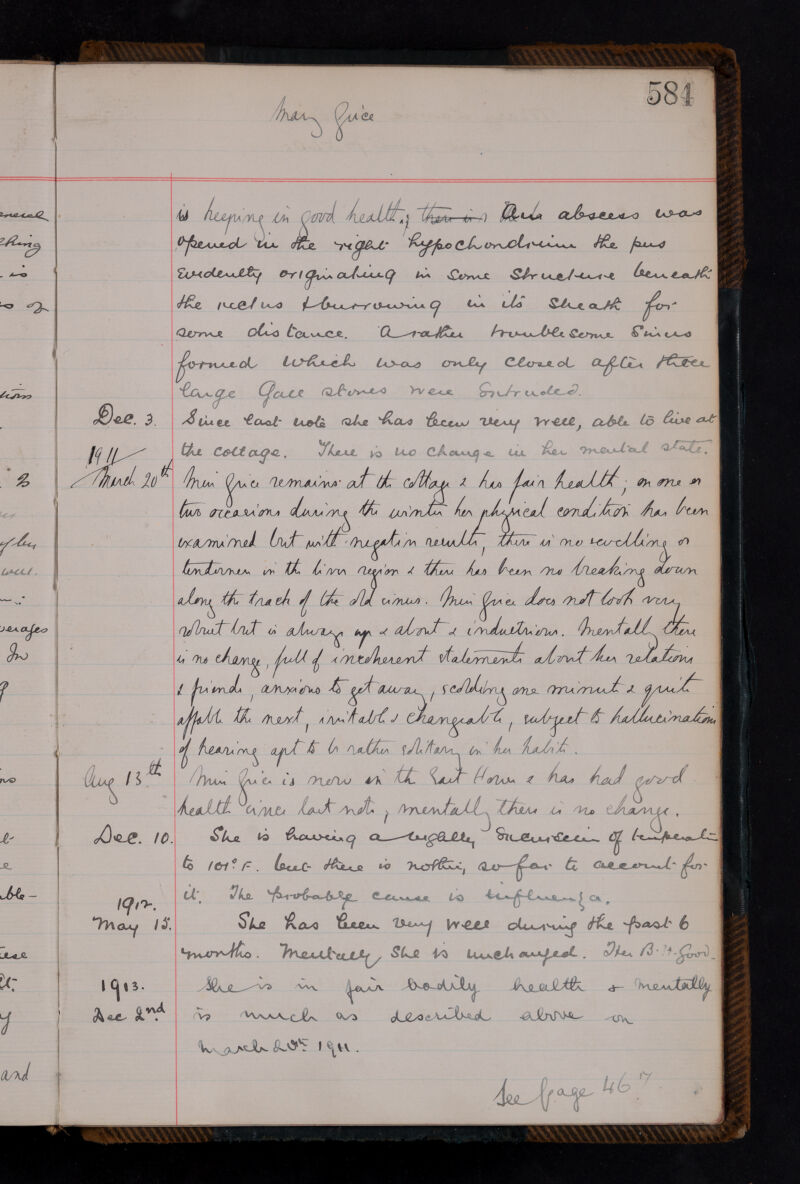 584
Mary Grice
is keeping in good health; there is An abscess was
opened in the right hypochondrium the pus
evidently originating in some structure beneath
the rectus & burrowing in its sheath for
some distance. A rather troublesome sinus
formed which was only closed after three
large Gall stones were extruded.
Dec. 3. Since last note she has been very well, able to live at
the cottage. There is no change in her mental state.
1911
March 20th Miss Grice remains at the cottage & has fair health; on one or
two occasions during the winter her physical condition has been
examined but with negative results, there is no swelling or
tenderness in the liver region & there has been no breaking down
along the track of the old sinus. Miss Grice does not look very
robust but is always up & about & industrious. Mentally there
is no change, full of incoherent statements about her relations
& friends, anxious to get away, scolding one minute & quite
affable the next, irritable & changeable, subject to hallucinations
of hearing apt to be rather solitary in her habits.
Aug 13th Miss Grice is now in the East House & has had good
health since last note, mentally there is no change.
Dec. 10. She is having a nightly of temperature
to 101° F. but there is nothing so far to account for
it. The probable cause is influenza.
1912.
May 15. She has been very well during the past 6
months. Mentally she is unchanged. Her B. H. Good.
1913. She is in fair bodily health & mentally
Dec 2nd is much as described above on
March 20th 1911.
See page 467
neral
thing
is
of
tions
well.
verages
In
no
e
able-
and